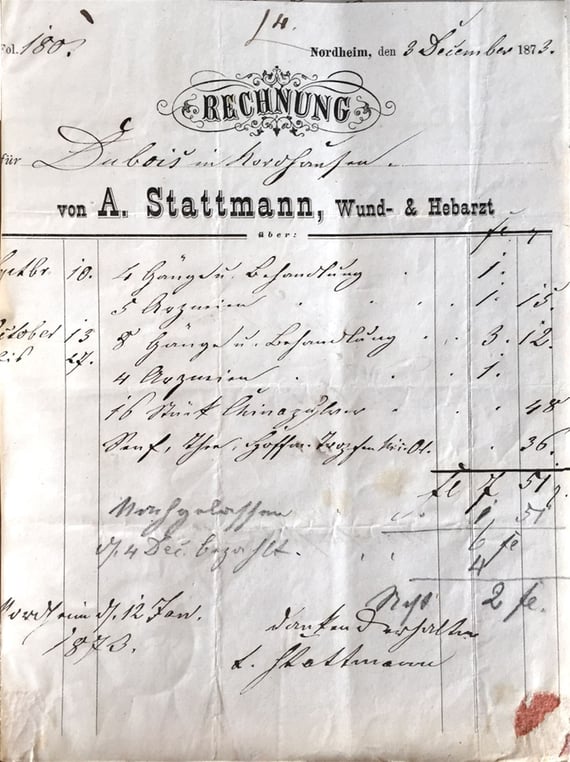 Fol. 180.
Nordheim, den 3 December 1873.
RECHNUNG
für Dubois in Nordhausen.
von A. Stattmann, Wund- & Hebarzt
über:
fl.
Septbr. 10. 4 Gänge u. Behandlung 1.
5 Arzneien 1. 15.
October 13 8 Gänge u. Behandlung 3. 12.
bis 27. 4 Arzneien 1.
16 Stück Chinapulver 48
Senf, Thee, Hoffm. Tropfen 36.
fl 7 51
Nachgelassen 1 51
6 fl
d. 4 Dec. bezahlt. 4
Rest 2 fl.
Nordheim d. 12 Jan.
1873.
dankend erhalten
A. Stattmann